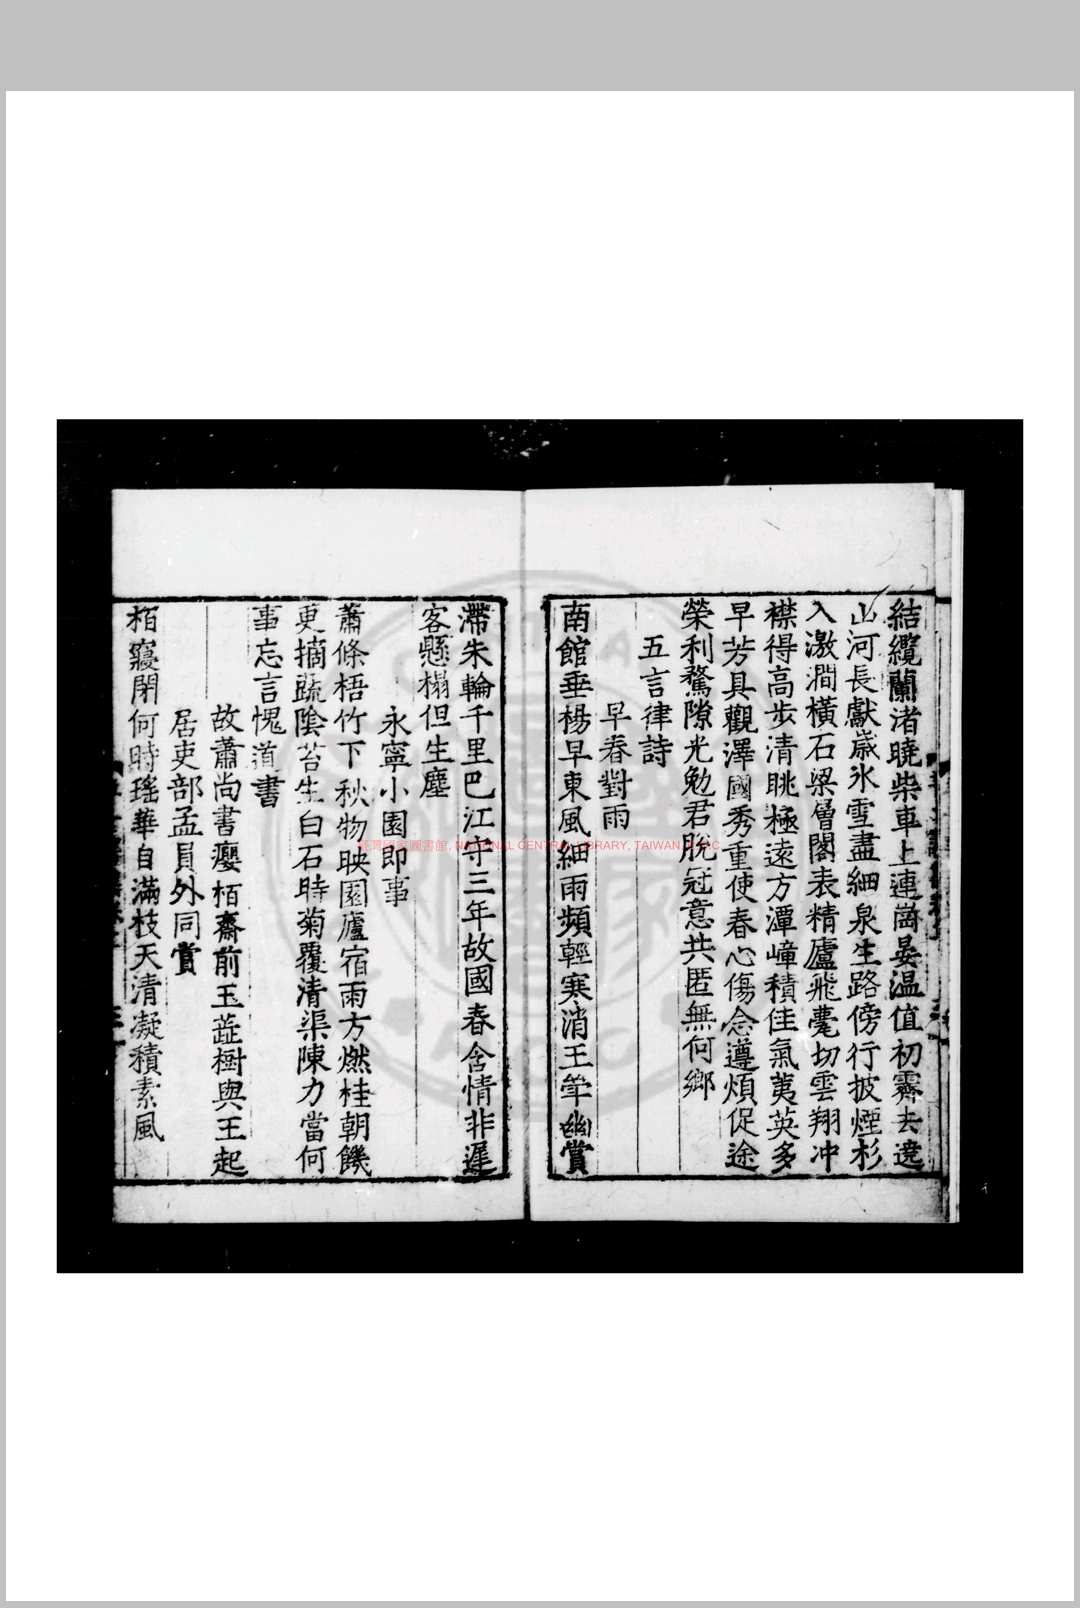 結纜蘭渚曉柴車上連崗晏温值初霽去遶
山河長獻嵗氷雪盡細泉生路傍行披煙杉
入激澗橫石梁層閣表精廬飛甍切雲翔冲
襟得高步清眺極遠方潭嶂積佳氣荑英多
早芳具觀澤國秀重使春心傷念遵煩促途
榮利騖隙光勉君脫冠意共匿無何鄉
五言律詩
早春對雨
南館垂楊早東風細雨頻輕寒消玉斝幽賞
滯朱輪千里巴江守三年故國春含情非遲
客懸榻但生塵
永寧小園即事
蕭條梧竹下秋物映園廬宿雨方燃桂朝饑
更摘蔬陰苔生白石時菊覆清渠陳力當何
事忘言愧道書
故蕭尚書癭栢齋前玉蘂樹與王起
居吏部孟員外同賞
栢寢閉何時瑤華自滿枝天清凝積素風
臺灣國家圖書館, NATIONAL CENTRAL LIBRARY, TAIWAN, R.O.C